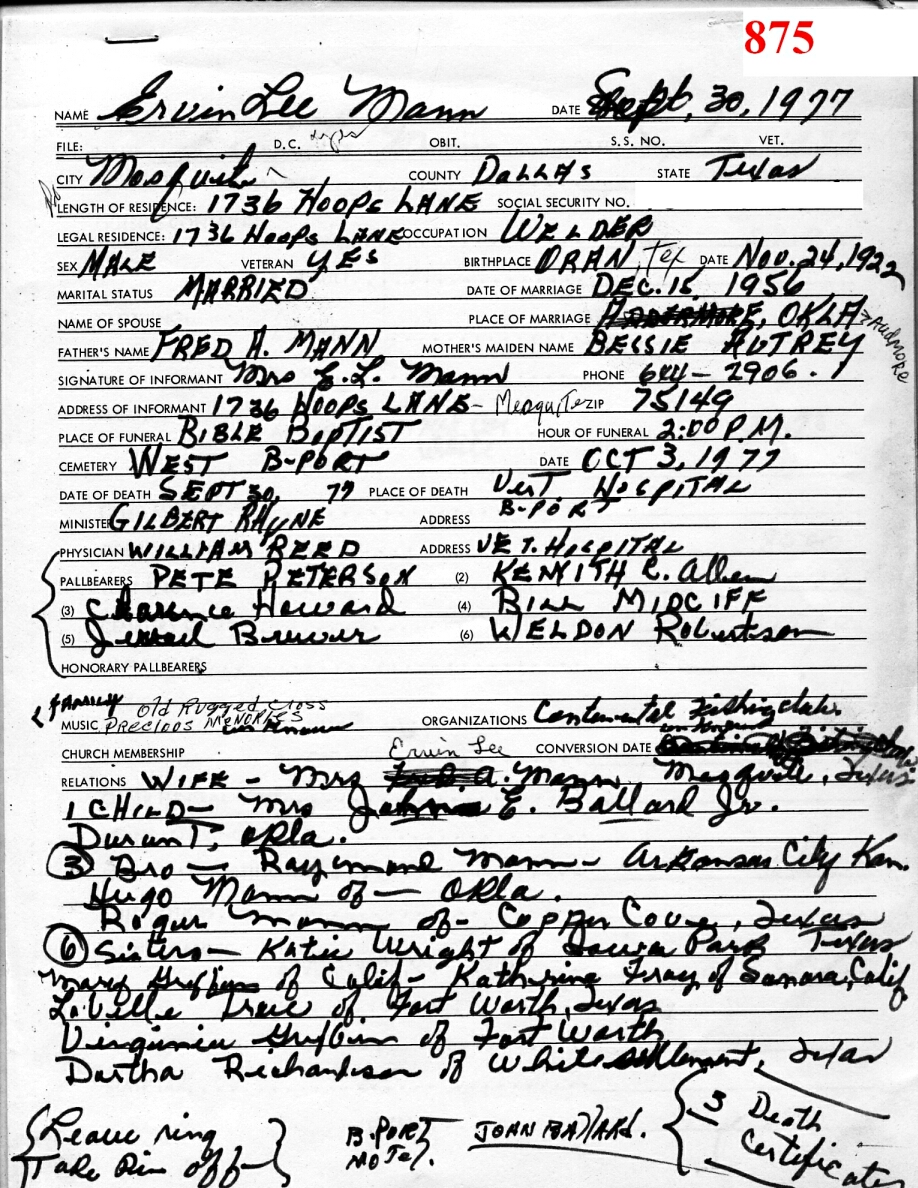 875
NAME Ervin Lee Mann DATE Sept, 30, 1977
FILE: D.C. OBIT. S.S. NO. VET.
CITY Mosquite COUNTY DALLAS STATE Texas
LENGTH OF RESIDENCE: 1736 HOOPS LANE SOCIAL SECURITY NO.
LEGAL RESIDENCE: 1736 HOOPS LANE OCCUPATION WELDER
SEX MALE VETERAN YES BIRTHPLACE ORAN, Tex DATE NOV. 24, 1922
MARITAL STATUS MARRIED DATE OF MARRIAGE DEC. 15, 1956
NAME OF SPOUSE PLACE OF MARRIAGE , OKLA ARDMORE
FATHER'S NAME FRED A. MANN MOTHER'S MAIDEN NAME BESSIE AUTREY
SIGNATURE OF INFORMANT Mrs E. L. Mann PHONE 644-2906.
ADDRESS OF INFORMANT 1736 HOOPS LANE - Mesquite ZIP 75149
PLACE OF FUNERAL BIBLE BAPTIST HOUR OF FUNERAL 2:00 P.M.
CEMETERY WEST B-PORT DATE OCT 3, 1977
DATE OF DEATH SEPT 30, 77 PLACE OF DEATH VET. HOSPITAL
B-PORT
MINISTER GILBERT RHYNE ADDRESS
PHYSICIAN WILLIAM REED ADDRESS VET. HOSPITAL
PALLBEARERS PETE PETERSON (2) KENNITH C. Allen
(3) Clarence Howard (4) BILL MIDCIFF
(5) Brewer (6) WELDON Robertson
HONORARY PALLBEARERS
FAMILY Old Rugged Cross
MUSIC PRECIOUS MEMORIES ORGANIZATIONS Continental Fishing club.
CHURCH MEMBERSHIP Ervin Lee CONVERSION DATE
RELATIONS WIFE - Mrs A. Mann, Mesquite, Texas
1 CHILD - Mrs John E. Ballard Jr.
Durant, Okla.
(3) Bro - Raymond Mann - Arkansas City Kan.
Hugo Mann of - Okla.
Roger Mann of - Copper Cove, Texas
(6) Sisters - Katie Wright of Iowa Park Texas
Mary Griffin of Calif - Katherine of Sonora, Calif
LaVelle of Fort Worth, Texas
Virginia Griffin of Fort Worth
Dartha Richardson of White settlement, Texas
Leave ring
Take Pin off
B-PORT
MOTEL.
JOHN BALLARD.
3 Death
Certificates